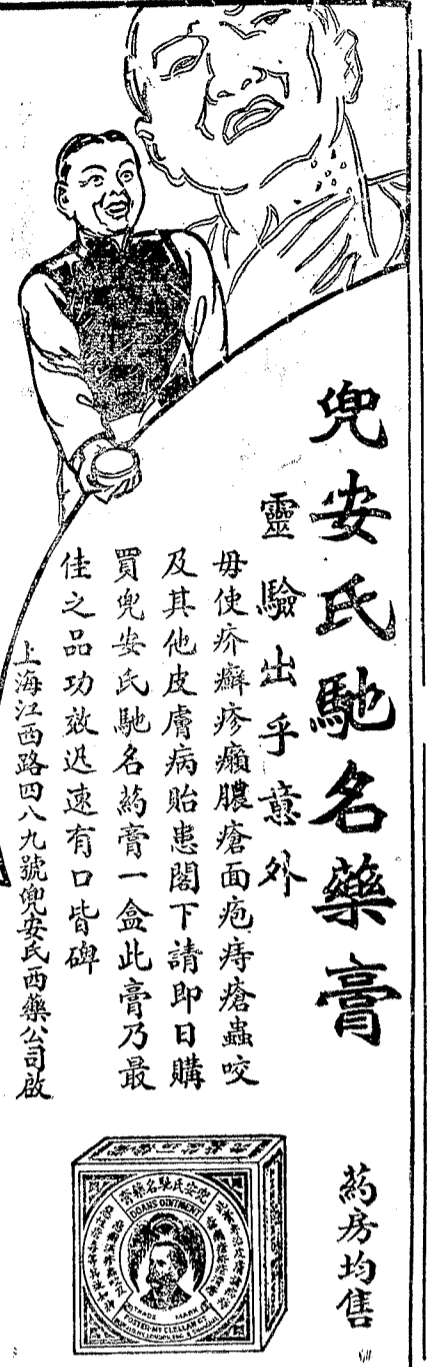 兜安氏馳名藥膏
靈驗出乎意外
毋使疥癬疹癩膿瘡面疱痔瘡蟲咬
及其他皮膚病貽患閣下請即日購
買兜安氏馳名药膏一盒此膏乃最
佳之品功效迅速有口皆碑
上海江西路四八九號兜安氏西藥公司啟
药房均售
兜安氏馳名藥膏
DOANS OINTMENT
TRADE MARK
FOSTER-McCLELLAN Co